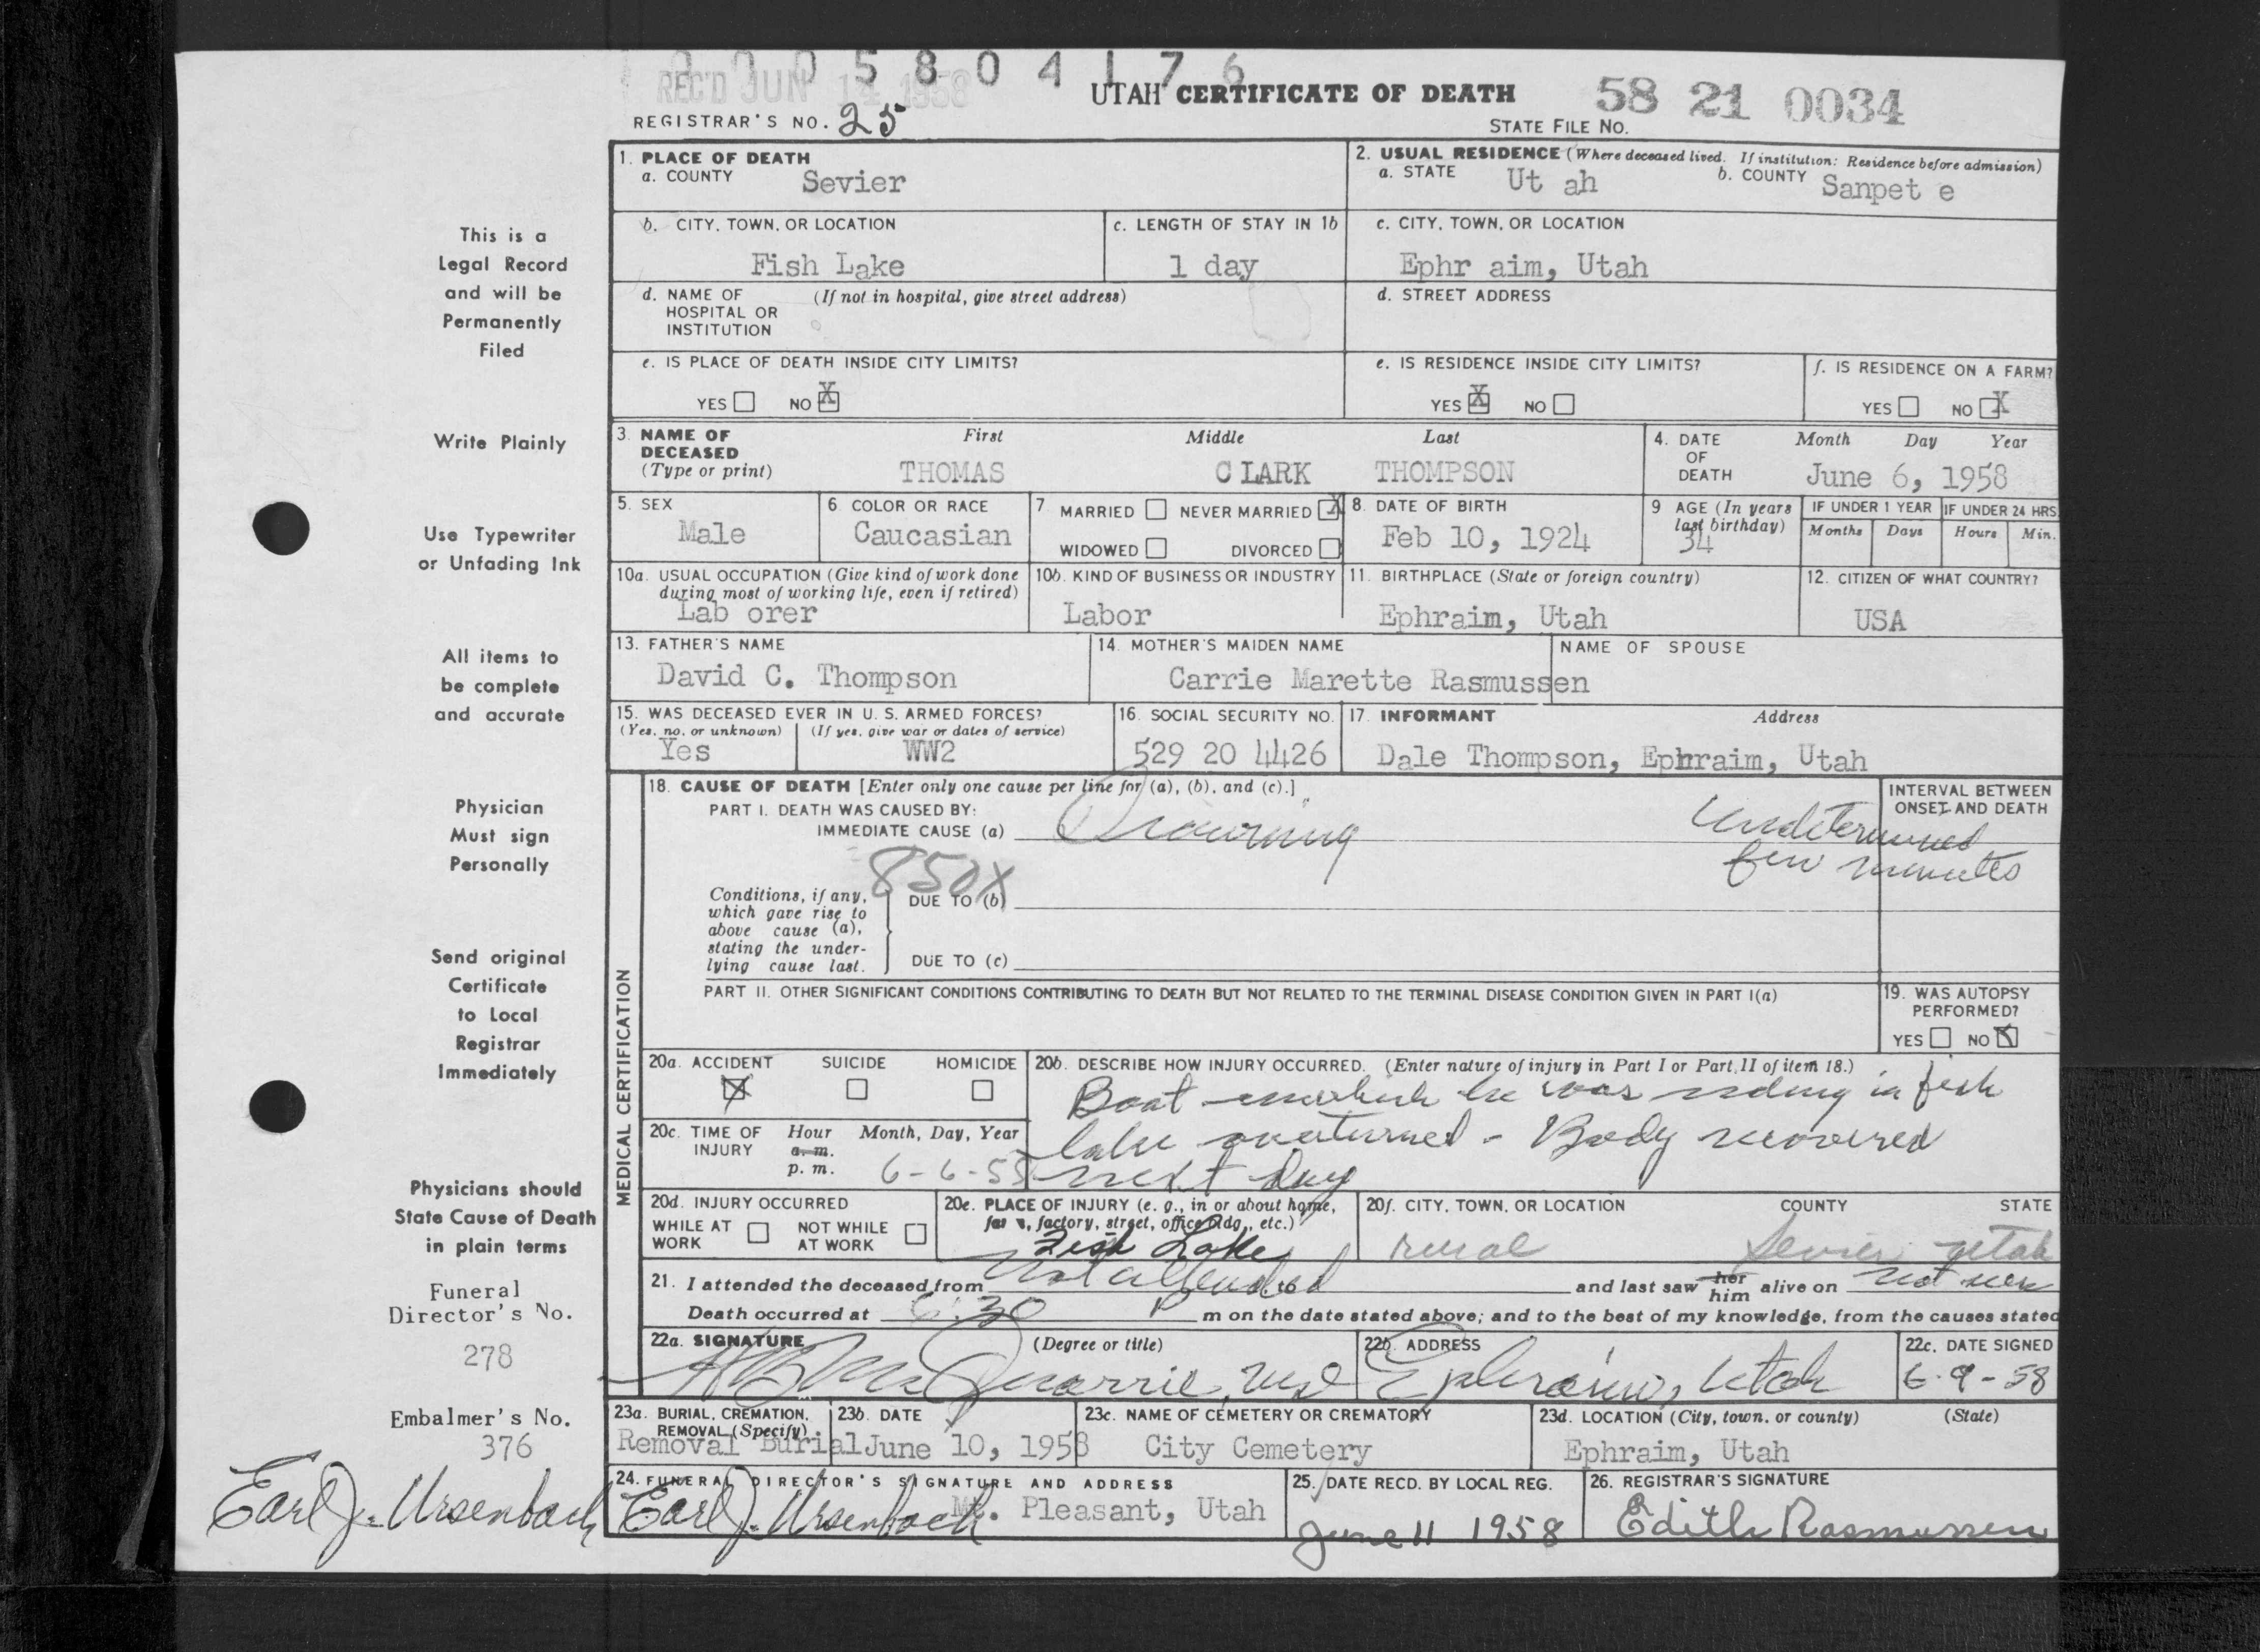 0005804176
REC'D JUN 14 1958
UTAH CERTIFICATE OF DEATH
58 21 0034
REGISTRAR'S NO. 25
STATE FILE NO.
This is a
Legal Record
and will be
Permanently
Filed
Write Plainly
Use Typewriter
or Unfading Ink
All items to
be complete
and accurate
Physician
Must sign
Personally
Send original
Certificate
to Local
Registrar
Immediately
Physicians should
State Cause of Death
in plain terms
Funeral
Director's No.
278
Embalmer's No.
376
Earl J. Ursenbach
1. PLACE OF DEATH
a. COUNTY Sevier
2. USUAL RESIDENCE (Where deceased lived. If institution: Residence before admission)
a. STATE Ut ah b. COUNTY Sanpet e
b. CITY, TOWN, OR LOCATION
Fish Lake
c. LENGTH OF STAY IN 1b
1 day
c. CITY, TOWN, OR LOCATION
Ephr aim, Utah
d. NAME OF (If not in hospital, give street address)
HOSPITAL OR
INSTITUTION
d. STREET ADDRESS
e. IS PLACE OF DEATH INSIDE CITY LIMITS?
YES NO X
e. IS RESIDENCE INSIDE CITY LIMITS?
YES X NO
f. IS RESIDENCE ON A FARM?
YES NO X
3. NAME OF First Middle Last
DECEASED
(Type or print) THOMAS C LARK THOMPSON
4. DATE Month Day Year
OF
DEATH June 6, 1958
5. SEX
Male
6. COLOR OR RACE
Caucasian
7. MARRIED NEVER MARRIED X
WIDOWED DIVORCED
8. DATE OF BIRTH
Feb 10, 1924
9 AGE (In years
last birthday)
34
IF UNDER 1 YEAR
Months Days
IF UNDER 24 HRS.
Hours Min.
10a. USUAL OCCUPATION (Give kind of work done
during most of working life, even if retired)
Lab orer
10b. KIND OF BUSINESS OR INDUSTRY
Labor
11. BIRTHPLACE (State or foreign country)
Ephraim, Utah
12. CITIZEN OF WHAT COUNTRY?
USA
13. FATHER'S NAME
David C. Thompson
14. MOTHER'S MAIDEN NAME
Carrie Marette Rasmussen
NAME OF SPOUSE
15. WAS DECEASED EVER IN U. S. ARMED FORCES?
(Yes, no, or unknown) (If yes, give war or dates of service)
Yes WW2
16. SOCIAL SECURITY NO.
529 20 4426
17. INFORMANT Address
Dale Thompson, Ephraim, Utah
MEDICAL CERTIFICATION
18. CAUSE OF DEATH [Enter only one cause per line for (a), (b), and (c).]
PART I. DEATH WAS CAUSED BY:
IMMEDIATE CAUSE (a) Drowning
INTERVAL BETWEEN
ONSET AND DEATH
Undetermined
few minutes
850X
Conditions, if any,
which gave rise to
above cause (a),
stating the under-
lying cause last.
DUE TO (b)
DUE TO (c)
PART II. OTHER SIGNIFICANT CONDITIONS CONTRIBUTING TO DEATH BUT NOT RELATED TO THE TERMINAL DISEASE CONDITION GIVEN IN PART I(a)
19. WAS AUTOPSY
PERFORMED?
YES NO X
20a. ACCIDENT SUICIDE HOMICIDE
X
20b. DESCRIBE HOW INJURY OCCURRED. (Enter nature of injury in Part I or Part II of item 18.)
Boat in which he was riding in fish
lake overturned - Body recovered
next day
20c. TIME OF Hour Month, Day, Year
INJURY a. m.
p. m. 6-6-58
20d. INJURY OCCURRED
WHILE AT
WORK
NOT WHILE
AT WORK
20e. PLACE OF INJURY (e. g., in or about home,
farm, factory, street, office bldg., etc.)
Fish Lake
20f. CITY, TOWN, OR LOCATION COUNTY STATE
rural Sevier Utah
21. I attended the deceased from Not attended to and last saw her him alive on not seen
Death occurred at 6:30 P m on the date stated above; and to the best of my knowledge, from the causes stated
22a. SIGNATURE (Degree or title)
McQuarrie, MD
22b. ADDRESS
Ephraim, Utah
22c. DATE SIGNED
6-9-58
23a. BURIAL, CREMATION,
REMOVAL (Specify)
Removal Burial
23b. DATE
June 10, 1958
23c. NAME OF CEMETERY OR CREMATORY
City Cemetery
23d. LOCATION (City, town, or county) (State)
Ephraim, Utah
24. FUNERAL DIRECTOR'S SIGNATURE AND ADDRESS
Earl J. Ursenbach Mt. Pleasant, Utah
25. DATE RECD. BY LOCAL REG.
June 11 1958
26. REGISTRAR'S SIGNATURE
Edith Rasmussen